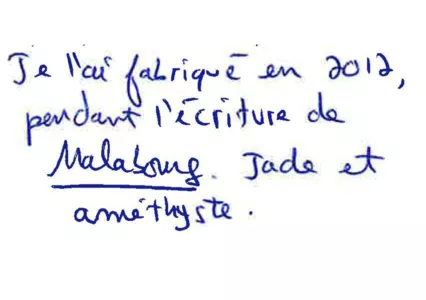 Je l'ai fabriqué en 2012,
pendant l'écriture de
Malabourg. Jade et
améthyste.